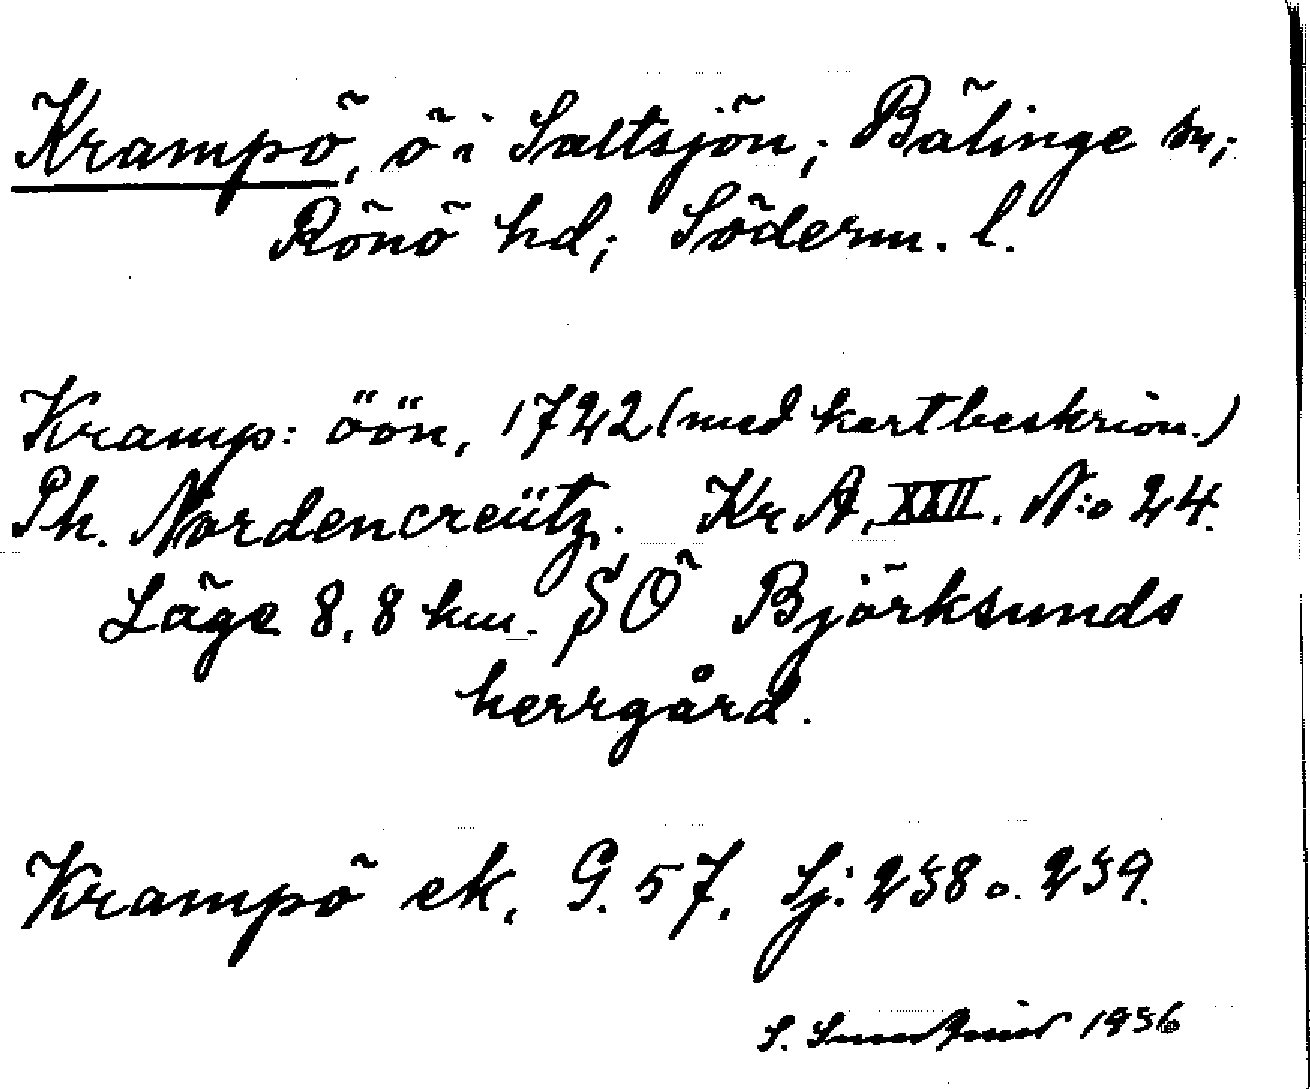 Krampö, ö i Saltsjön; Bälinge sn;
Rönö hd; Söderm. l.
Kramp: öön, 1722 (med kartbeskrivn.)
Ph. Nordencreütz. Kr A, XXII. N:o 24.
Läge 8,8 km. SÖ Björksunds
herrgård.
Krampö ek. G. 57. Sj: 238 o. 239.
S. 1936